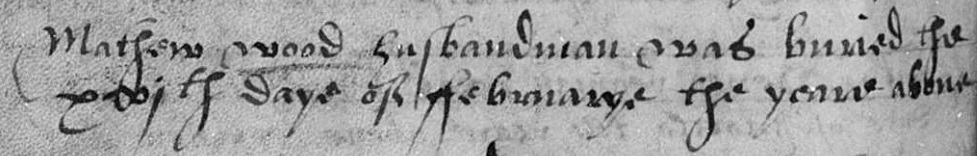 Mathew wood husbandman was buried the
xvjth daye of ffebruarye the yeare above